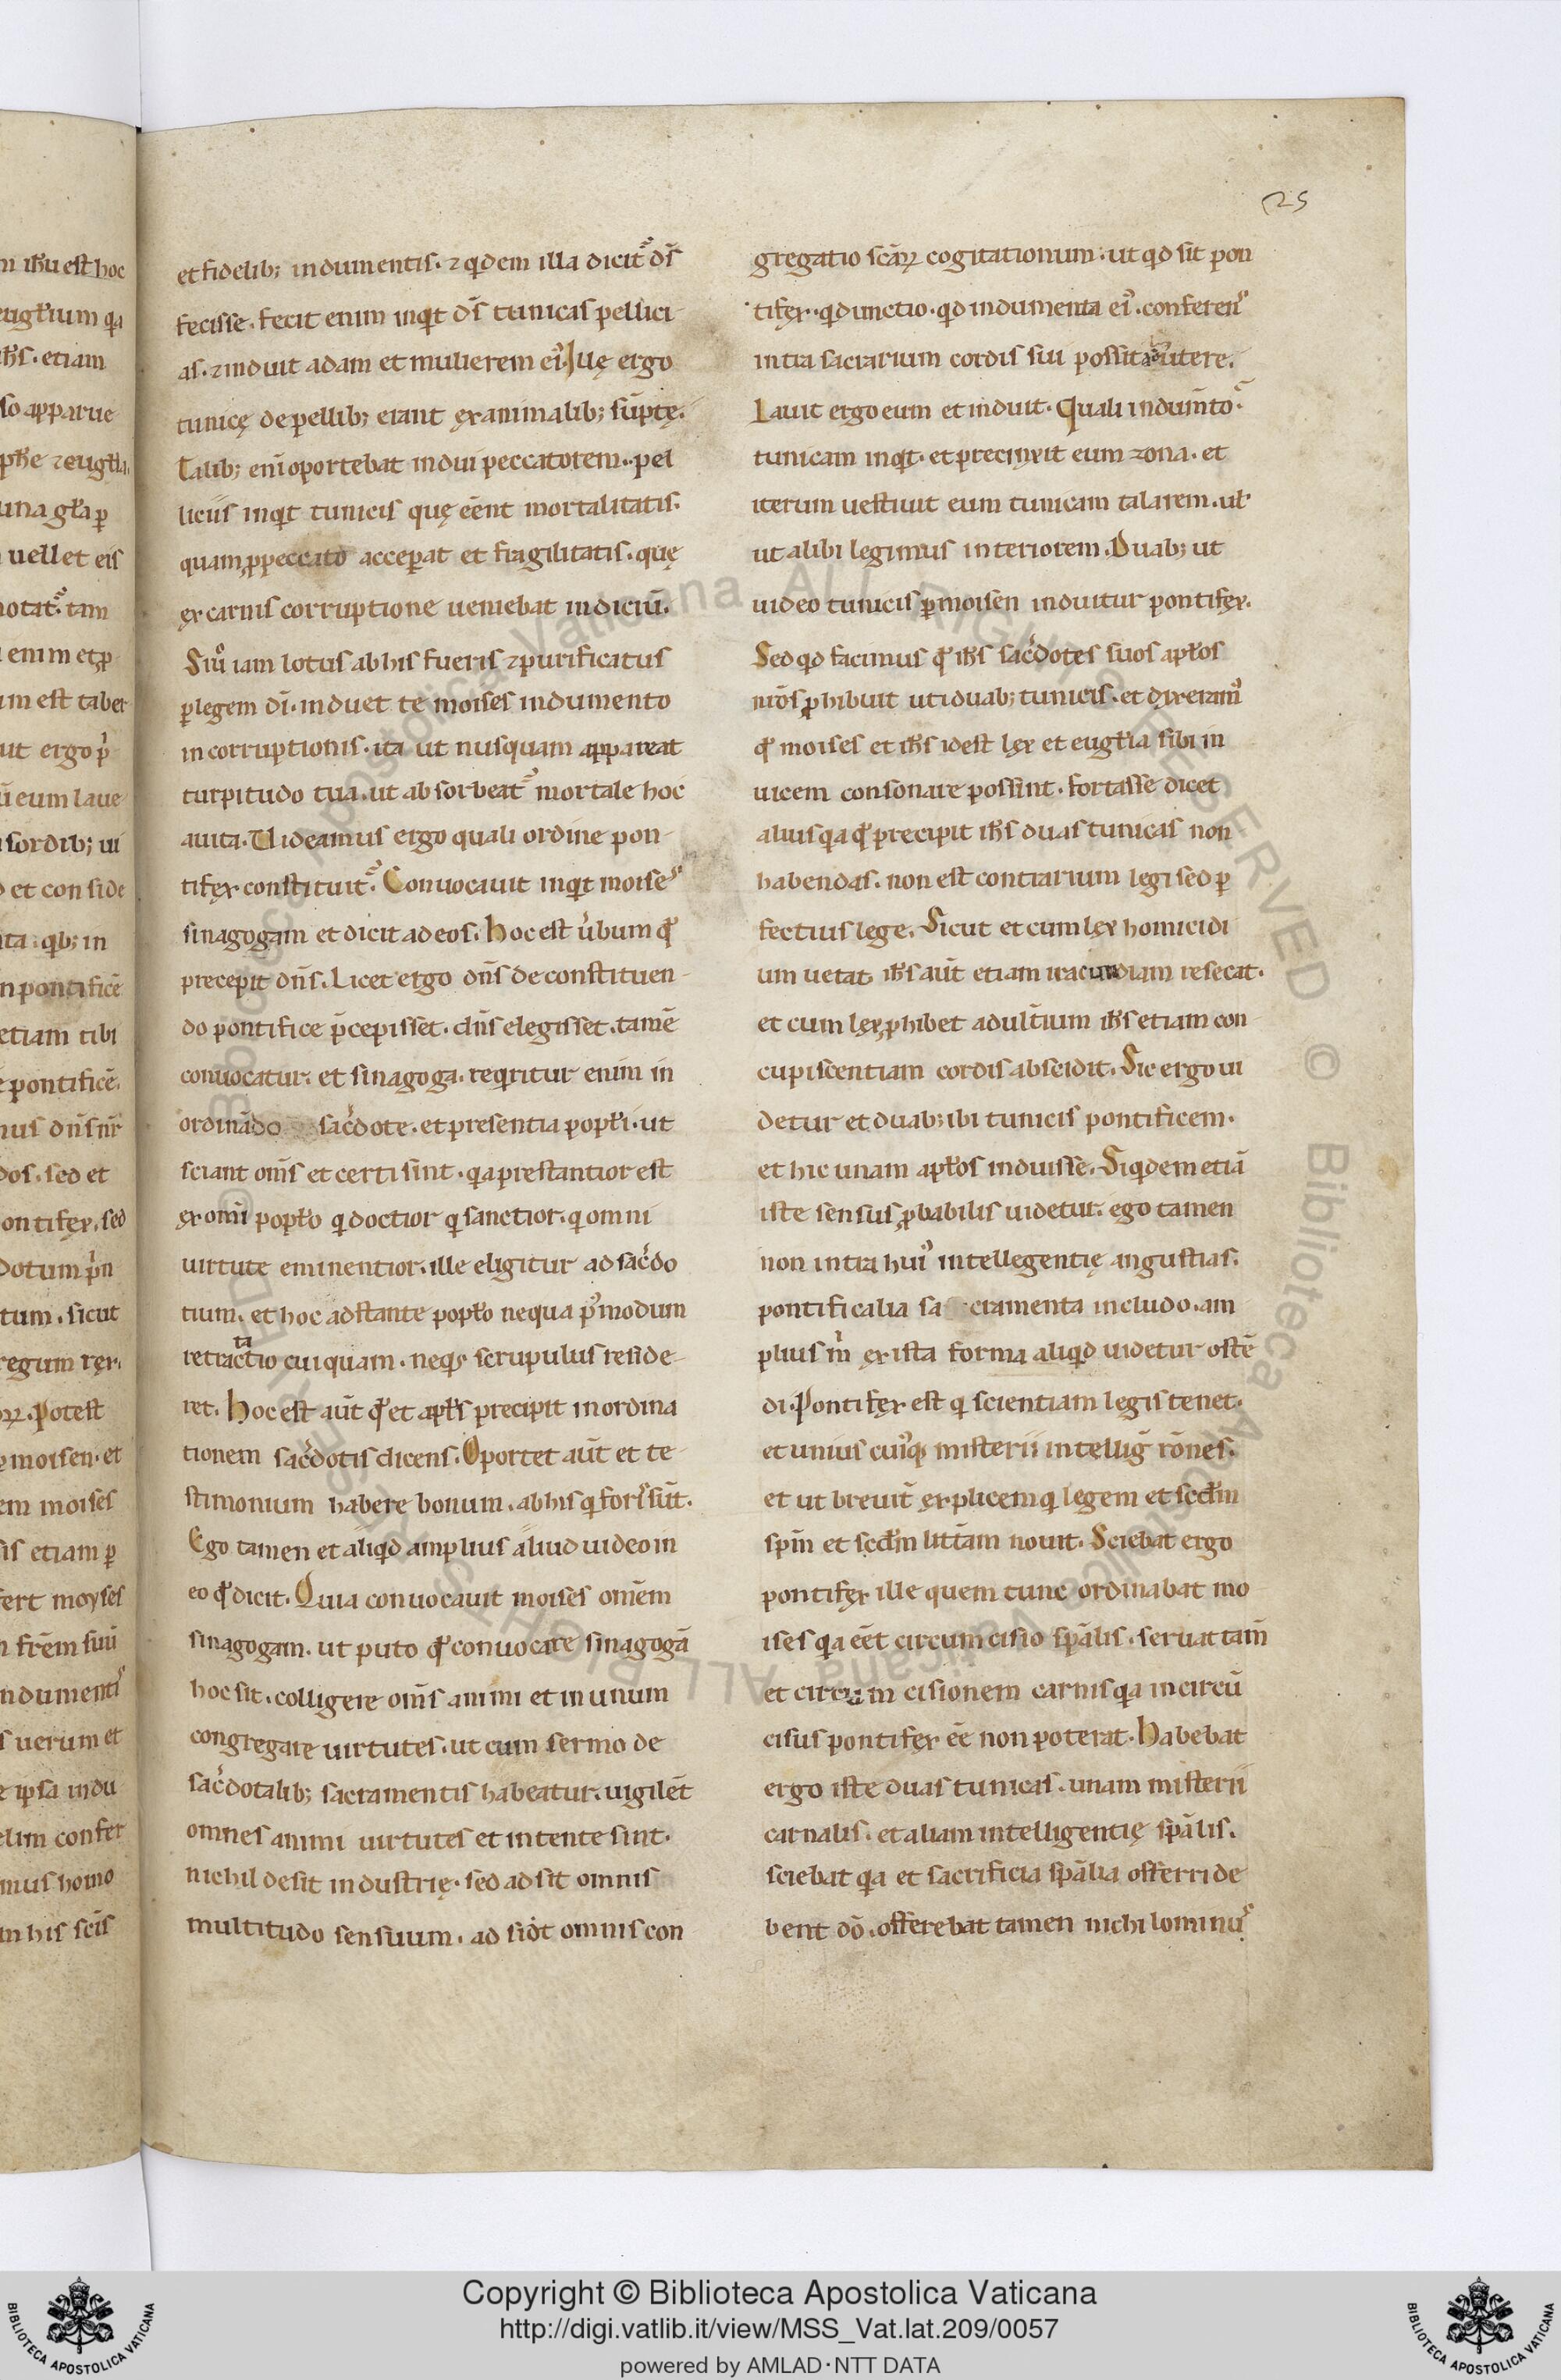 25
et fidelib; indumentis. ⁊ qdem illa dicit᷑ ds̄
fecisse. fecit enim inqt ds̄ tunicas pellici-
as. ⁊ induit adam et mulierem ei᷒. Iuę ergo
tunicę de pellib; erant ęx animalib; sūptę.
Talib; enī oportebat indui peccatorem. pel
liciis inqt tunicis quę eēnt mortalitatis.
quam ꝓ peccato acceꝑat et fragilitatis. quę
ęx carnis corruptione ueniebat indiciū.
Siu᷒ iam lotus ab his fueris ⁊ purificatus
ꝑ legem dī. induet te moises indumento
incorruptionis. ita ut nusquam appareat
turpitudo tua. ut absorbeat᷑ mortale hoc
a uita. Uideamus ergo quali ordine pon-
tifęx constituit᷑. Conuocauit inqt moise᷒
sinagogam et dicit ad eos. hoc est u̾bum qd̾
precepit dn̄s. Licet ergo dn̄s de constituen-
do pontifice p̄cepisset. dn̄s elegisset. tamē
conuocatur. et sinagoga. reqritur enim in
ordinādo sac̾dote. et presentia popłi. ut
sciant om̄s et certi sint. qa prestantior est
ęx omī popło q doctior q sanctior. q omni
uirtute eminentior. ille eligitur ad sac̾do
tium. et hoc adstante popło nequa p᷒modum
retractatio cuiquam. neq; scrupulus reside-
ret. hoc est aūt qd̾ et apłs precipit in ordina
tionem sac̾dotis dicens. Oportet aūt et te-
stimonium habere bonum. ab his q foris sūt.
Ego tamen et aliqd amplius aliud uideo in
eo qd̾ dicit. Quia conuocauit moises omēm
sinagogam. ut puto qd̾ conuocare sinagogā
hoc sit. colligere om̄s animi et in unum
congregare uirtutes. ut cum sermo de
sac̾dotalib; sacramentis habeatur. uigilēt
omnes animi uirtutes et intente sint.
nichil desit industrię. sed adsit omnis
multitudo sensuum. adsit omnis con
gregatio scāꝝ cogitationum. ut qd sit pon
tifęx. qd unctio. qd indumenta ei᷒. conferen᷒
intra sacrarium cordis sui possit
Lauit ergo eum et induit. Quali indum̄to.
tunicam inqt. et precinxit eum zona. et
iterum uestiuit eum tunicam talarem. uł
ut alibi legimus interiorem. Duab; ut
uideo tunicis ꝑ moisen induitur pontifęx.
Sed qd facimus qd̾ ih̄s sac̾dotes suos apłos
nr̄os ꝓhibuit uti duab; tunicis. et dixeram᷒
qd̾ moises et ih̄s idest lęx et eugłia sibi in
uicem consonare possint. fortasse dicet
aliusqa qd̾ precipit ih̄s duas tunicas non
habendas. non est contrarium legi sed ꝑ
fectius lege. Sicut et cum lęx homicidi
um uetat. ih̄s aūt etiam iracundiam resecat.
et cum lęx ꝓhibet adult̄ium ih̄s etiam con
cupiscentiam cordis abscidit. Sic ergo ui
detur et duab; ibi tunicis pontificem.
et hic unam apłos induisse. Siqdem etiā
iste sensus ꝓbabilis uidetur. ego tamen
non intra hui᷒ intellegentię angustias.
pontificalia sacramenta includo. am
plius m̾ ęx ista forma aliqd uidetur ostē
di. Pontifęx est q scientiam legis tenet.
et unius cui᷒q; misterii intellig̾ rōnes.
et ut breuit̾ ęxplicem q legem et scd̄m
spm̄ et scd̄m litt̄am nouit. Sciebat ergo
pontifęx ille quem tunc ordinabat mo
ises qa eēt circumcisio spālis. seruat tam̄
et circumcisionem carnis qa incircū
cisus pontifęx eē non poterat. habebat
ergo iste duas tunicas. unam misterii
carnalis. et aliam intelligentię spālis.
sciebat qa et sacrificia spālia offerri de
bent dō. offerebat tamen nichilominu᷒
© Biblioteca Apostolica Vaticana ALL RIGHTS RESERVED
Copyright © Biblioteca Apostolica Vaticana
http://digi.vatlib.it/view/MSS_Vat.lat.209/0057
powered by AMLAD·NTT DATA
BIBLIOTECA APOSTOLICA VATICANA
BIBLIOTECA APOSTOLICA VATICANA